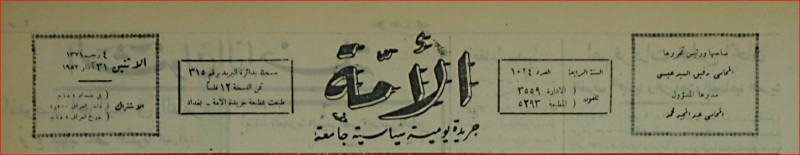 صاحبها ورئيس تحريرها
المحامي رفيق السيد عيسى
مديرها المسؤول
المحامي عبد المجيد محمد
السنة الرابعة العدد ١٠٢٤
تلفون ( الادارة ٣٥٥٩
( المطبعة ٥٢٩٣
الأمة
جريدة يومية سياسية جامعة
مسجلة بدائرة البريد برقم ٣١٥
ثمن النسخة ١٢ فلساً
طبعت بمطبعة جريدة الامة - بغداد
٤ رجب ١٣٧١
الاثنين
٣١ آذار ١٩٥٢
الاشتراك